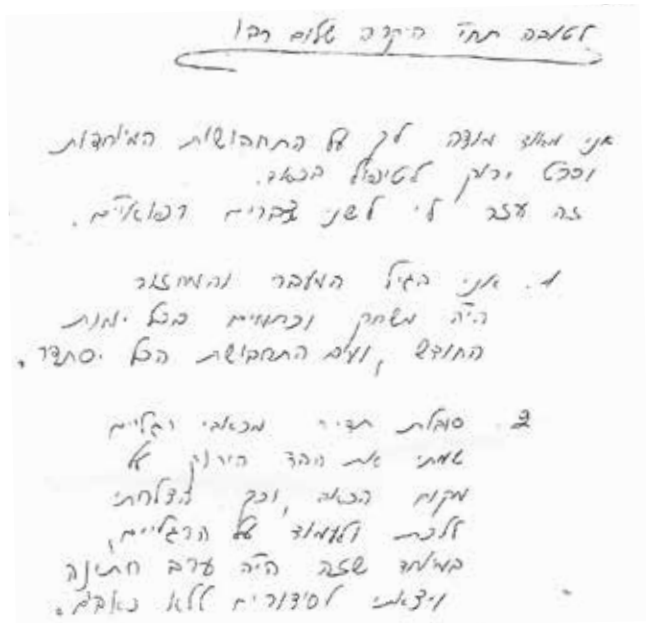 לטובה תחי' היקרה שלום רב!
אני מאוד מודה לך על התחבושות המיוחדות
ופרט ירוק לטיפול בכאב.
זה עזר לי לשני דברים רפואיים.
1. אני בגיל המעבר והמחזור
היה משחק וכתמים בכל ימות
החודש, ועם התחבושת הכל יסתדר.
2. סובלת תדיר מכאבי רגליים
שמתי את הבד הירוק על
מקום הכאב, וכך הצלחתי
ללכת ולעמוד על הרגליים,
במיוחד שזה היה ערב חתונה
ויצאתי לסידורים ללא כאבים.